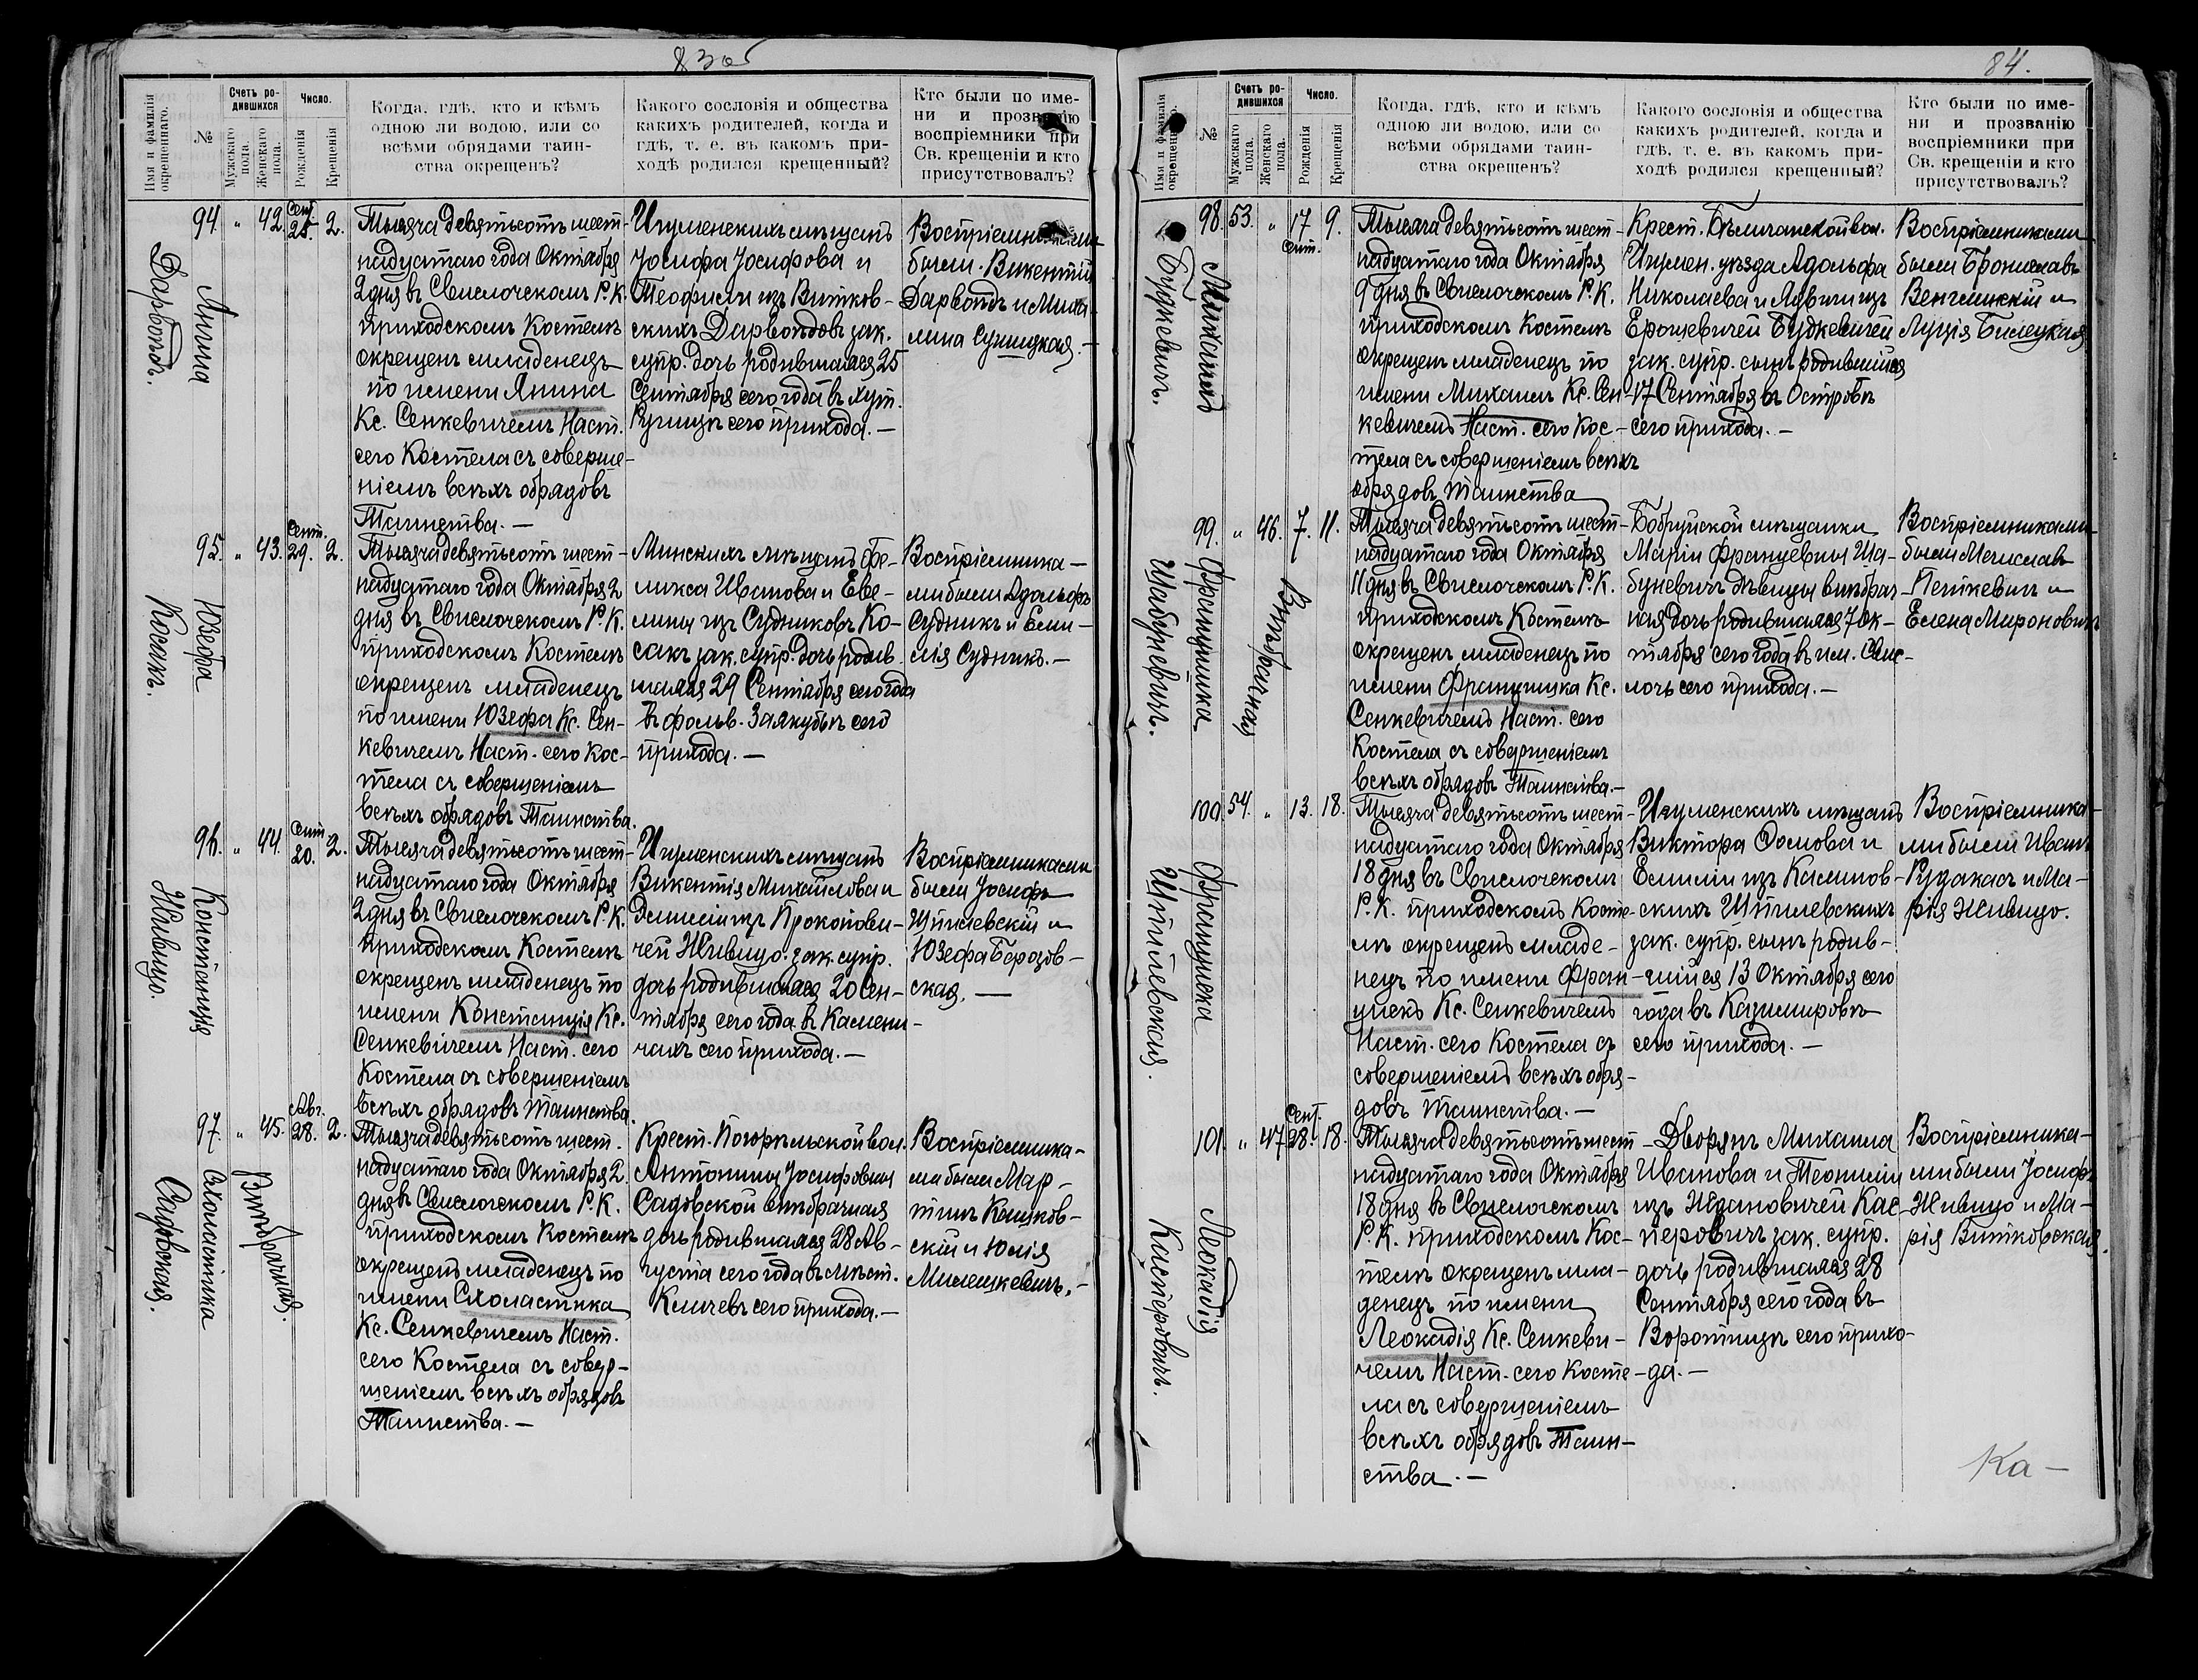 83об
Имя и фамилія окрещеннаго.
№
Счетъ ро-
дившихся
Мужскаго пола.
Женскаго пола.
Число.
Рожденія
Крещенія
Когда, гдѣ, кто и кѣмъ
одною ли водою, или со
всѣми обрядами таин-
ства окрещенъ?
Какого сословія и общества
какихъ родителей, когда и
гдѣ, т. е. въ какомъ при-
ходѣ родился крещенный?
Кто были по име-
ни и прозванію
воспріемники при
Св. крещеніи и кто
присутствовалъ?
94. " 42. Сент. 25. 2.
Янина
Дарвойдъ.
Тысяча девятьсотъ шест-
надцатаго года Октября
2 дня въ Свислочскомъ Р. К.
приходскомъ Костелѣ
окрещенъ младенецъ
по имени Янина
Кс. Сенкевичемъ Наст.
сего Костела съ соверше-
ніемъ всѣхъ обрядовъ
Таинства. —
Игуменскихъ мѣщанъ
Іосифа Іосифова и
Теофили изъ Витков-
скихъ Дарвойдовъ зак.
супр. дочь родившаяся 25
Сентября сего года въ хут.
сего прихода. —
Воспріемниками
были Викентій
Дарвойдъ и Миха-
лина Сущицкая. —
95. " 43. Сент. 29. 2.
Юзефа
Косакъ.
Тысяча девятьсотъ шест-
надцатаго года Октября 2
дня въ Свислочскомъ Р. К.
приходскомъ Костелѣ
окрещенъ младенецъ
по имени Юзефа Кс. Сен-
кевичемъ Наст. сего Кос-
тела съ совершеніемъ
всѣхъ обрядовъ Таинства.
Минскихъ мѣщанъ Фе-
ликса Иванова и Еве-
лины изъ Судниковъ Ко-
сакъ зак. супр. дочь родив-
шаяся 29 Сентября сего года
въ фольв. Заякубъѣ сего
прихода. —
Воспріемника-
ми были Адольфъ
Судникъ и Еми-
лія Судникъ. —
96. " 44. Сент. 20. 2.
Констанція
Живицо.
Тысяча девятьсотъ шест-
надцатаго года Октября
2 дня въ Свислочскомъ Р. К.
приходскомъ Костелѣ
окрещенъ младенецъ по
имени Констанція Кс.
Сенкевичемъ Наст. сего
Костела съ совершеніемъ
всѣхъ обрядовъ таинства.
Игуменскихъ мѣщанъ
Викентія Михайлова и
Эмиліи изъ Прокопови-
чей Живицо зак. супр.
дочь родившаяся 20 Сен-
тября сего года въ Камени-
чахъ сего прихода. —
Воспріемниками
были Іосифъ
Шпилевскій и
Юзефа Борозов-
ская. —
97. " 45. Авг. 28. 2.
Схоластика
Садовская.
Внѣбрачная.
Тысяча девятьсотъ шест-
надцатаго года Октября 2
дня въ Свислочскомъ Р. К.
приходскомъ Костелѣ
окрещенъ младенецъ по
имени Схоластика
Кс. Сенкевичемъ Наст.
сего Костела съ совер-
шеніемъ всѣхъ обрядовъ
Таинства. —
Крест. Погорѣльской вол.
Антонины Іосифовны
Садовской внѣбрачная
дочь родившаяся 28 Ав-
густа сего года въ мѣст.
Кличевъ сего прихода. —
Воспріемника-
ми были Мар-
тинъ Кошков-
скій и Юлія
Милешкевичъ. —
84.
Имя и фамилія окрещеннаго.
№
Счетъ ро-
дившихся
Мужскаго пола.
Женскаго пола.
Число.
Рожденія
Крещенія
Когда, гдѣ, кто и кѣмъ
одною ли водою, или со
всѣми обрядами таин-
ства окрещенъ?
Какого сословія и общества
какихъ родителей, когда и
гдѣ, т. е. въ какомъ при-
ходѣ родился крещенный?
Кто были по име-
ни и прозванію
воспріемники при
Св. крещеніи и кто
присутствовалъ?
98. 53. " 17 Сент. 9.
Михаилъ
Будкевичъ.
Тысяча девятьсотъ шест-
надцатаго года Октября
9 дня въ Свислочскомъ Р. К.
приходскомъ Костелѣ
окрещенъ младенецъ по
имени Михаилъ Кс. Сен-
кевичемъ Наст. сего Кос-
тела съ совершеніемъ всѣхъ
обрядовъ таинства
Крест. Бѣличанской вол.
Игумен. уѣзда Адольфа
Николаева и Ядвиги изъ
Ерошевичей Будкевичей
зак. супр. сынъ родившійся
17 Сентября въ Островѣ
сего прихода. —
Воспріемниками
были Брониславъ
Венглинскій и
Луція Билецкая
99. " 46. 7. 11.
Францишка
Шабуневичъ.
Внѣбрачная
Тысяча девятьсотъ шест-
надцатаго года Октября
11 дня въ Свислочскомъ Р. К.
приходскомъ Костелѣ
окрещенъ младенецъ по
имени Францишка Кс.
Сенкевичемъ Наст. сего
Костела съ совершеніемъ
всѣхъ обрядовъ Таинства. —
Бобруйской мѣщанки
Маріи Францевны Ша-
буневичъ дѣвицы внѣбрач-
ная дочь родившаяся 7 Ок-
тября сего года въ им. Свис-
лочь сего прихода. —
Воспріемниками
были Мечиславъ
Петкевичъ и
Елена Мироновичъ
100. 54. " 13. 18.
Францишекъ
Шпилевская.
Тысяча девятьсотъ шест-
надцатаго года Октября
18 дня въ Свислочскомъ
Р. К. приходскомъ Косте-
лѣ окрещенъ младе-
нецъ по имени Фран-
цишекъ Кс. Сенкевичемъ
Наст. сего Костела съ
совершеніемъ всѣхъ обря-
довъ таинства. —
Игуменскихъ мѣщанъ
Виктора Осипова и
Емиліи изъ Калинов-
скихъ Шпилевскихъ
зак. супр. сынъ родив-
шійся 13 Октября сего
года въ Казимировѣ
сего прихода. —
Воспріемника-
ми были Иванъ
Рудакасъ и Ма-
рія Живицо.
101. " 47. Сент. 28. 18.
Леокадія
Касперовичъ.
Тысяча девятьсотъ шест-
надцатаго года Октября
18 дня въ Свислочскомъ
Р. К. приходскомъ Кос-
телѣ окрещенъ мла-
денецъ по имени
Леокадія Кс. Сенкеви-
чемъ Наст. сего Косте-
ла съ совершеніемъ
всѣхъ обрядовъ таин-
ства. —
Дворянъ Михаила
Иванова и Теофиліи
изъ Ждановичей Кас-
перовичъ зак. супр.
дочь родившаяся 28
Сентября сего года въ
Воротищѣ сего прихо-
да. —
Воспріемника-
ми были Іосифъ
Живицо и Ма-
рія Витковская.
Ка—